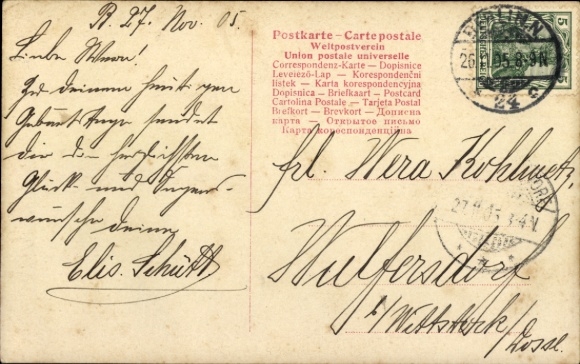 B. 27. Nov. 05.
Liebe Wera!
Zu Deinem heutigen
Geburtstage sendet
dir die herzlichsten
Glück- und Segens-
wünsche deine
Elis. Schütt
Postkarte – Carte postale
Weltpostverein
Union postale universelle
Correspondenz-Karte – Dopisnice
Levelező-Lap – Korespondenční
listek – Karta korespondencyjna
Dopisnica – Briefkaart – Postcard
Cartolina Postale – Tarjeta Postal
Brefkort – Brevkort – Дописна
карта – Открытое письмо
Карта кореспонденциiна
BERLIN N
26 05. 8-9N
24 c
5
5
frl. Wera Kohlmetz,
27.11.05. 3-4N.
Wulfersdorf
b/Wittstock/
Dosse.